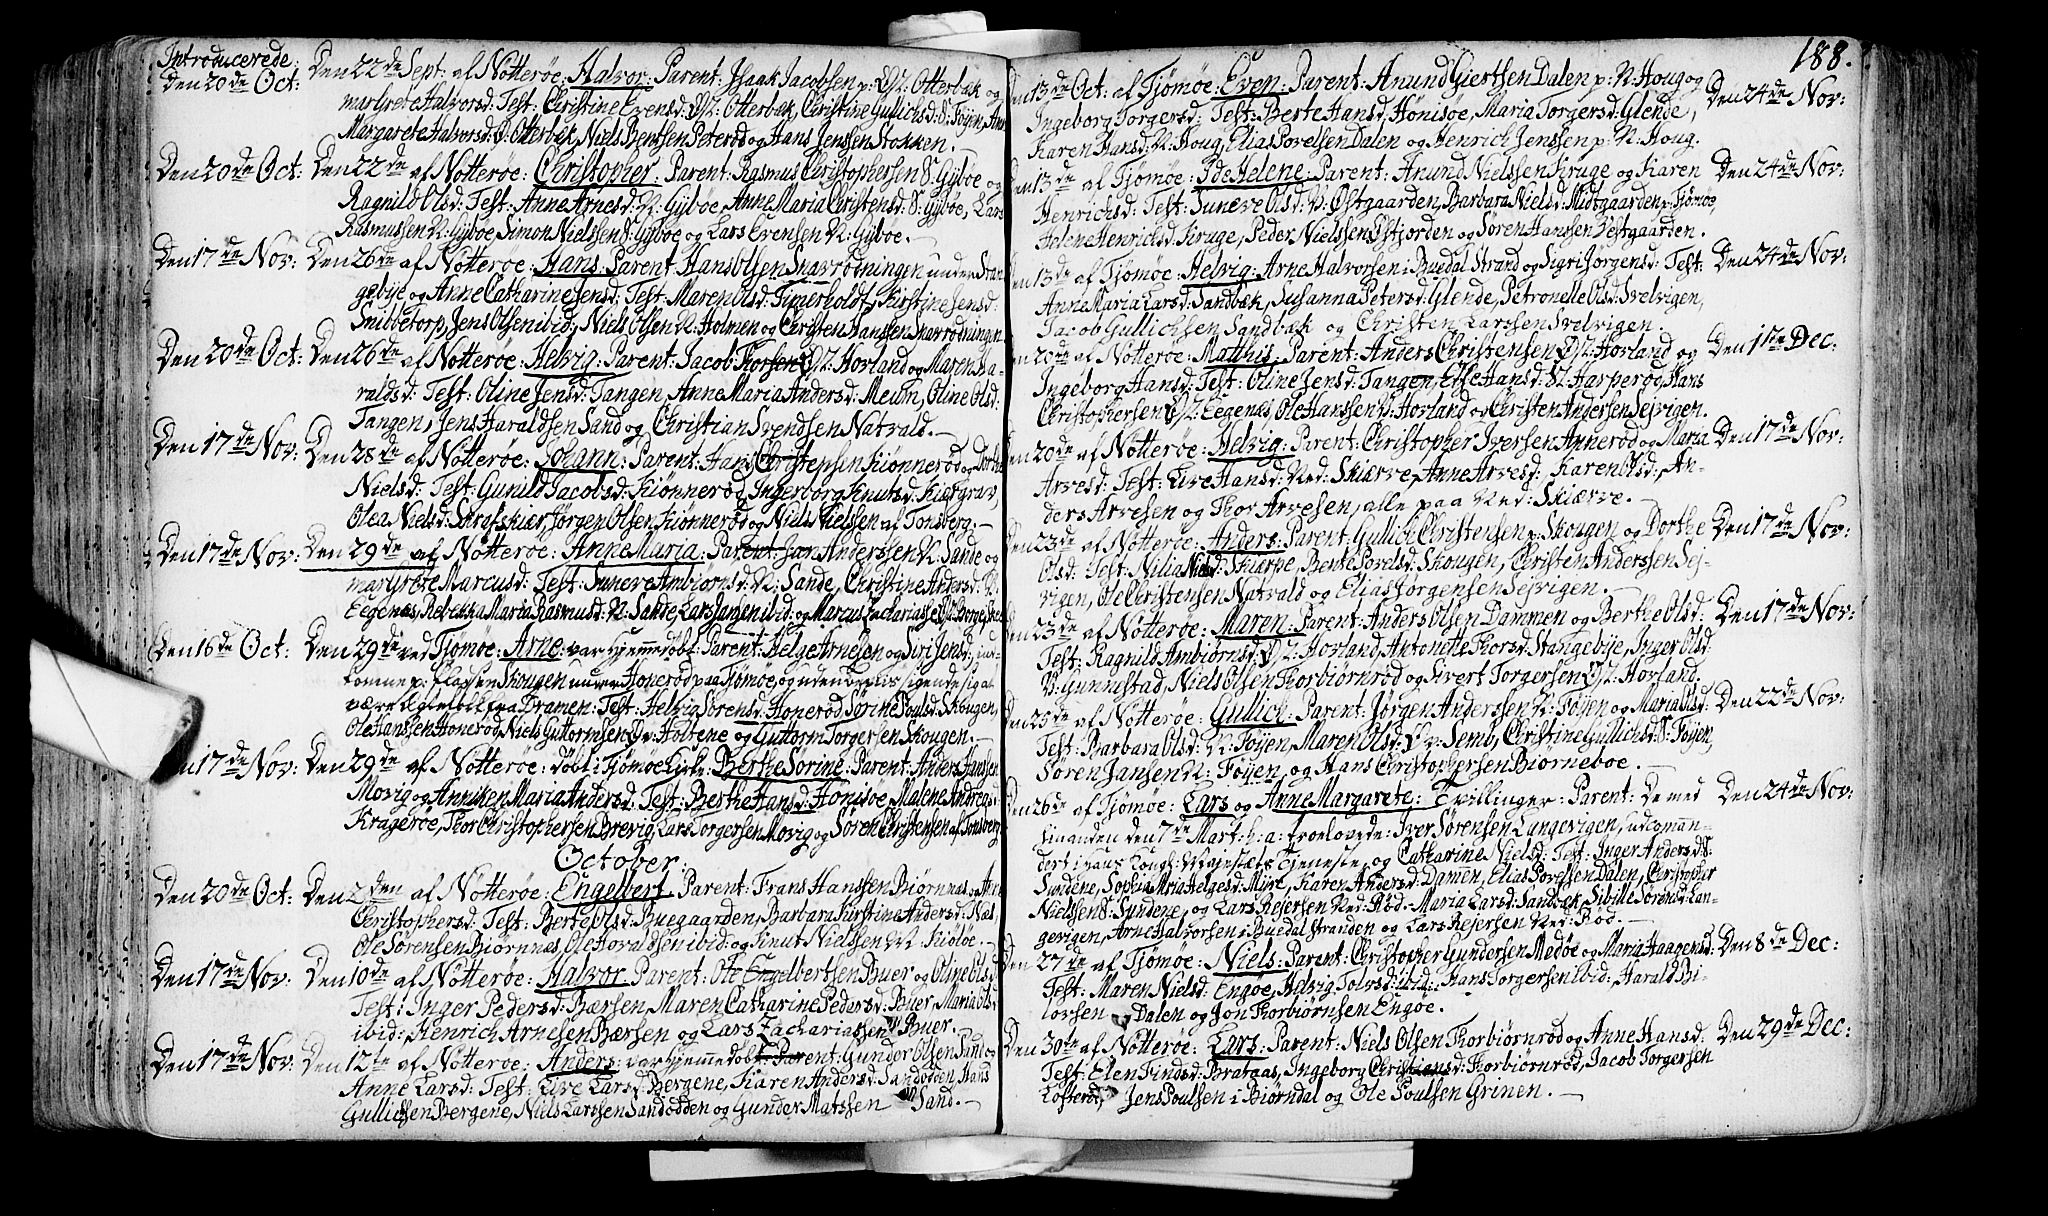 Introducerede:
Den 20de Oct: Den 22de Sept: af Nötteröe: Halvor: Parent: Isaak Jacobsen p: Ø: Otterbæk og
margrete Halvorsd: Test: Christine Evensd: Otterbæk, Christine Gullichsd: S: Föyen, Anne
Margarete Halvorsd: Otterbæk, Niels Bentsen Peterød og Hans Jenssen Stokken.
Den 20de Oct: Den 22de af Nötteröe: Christopher: Parent: Rasmus Christophersen S: Gyböe og
Ragnild Olsd: Test: Anne Arnesd: N: Gyböe, Anne Maria Christensd: S: Gyböe, Lars
Rasmussen N: Gyböe, Simon Nielssen S: Gyböe og Lars Evensen N: Gyböe.
Den 17de Nov: Den 26de af Nötteröe: Hans: Parent: Hans Olsen Snarrødningen under Stan-
gebije og Anne Catharine Jensd: Test: Maren Olsd: Timerholdt, Kirstine Jensd:
Snibbetorp, Jens Olsen ibid, Niels Olsen N: Holmen og Christen Hanssen Snarrødningen
Den 20de Oct: Den 26de af Nötteröe: Helvig: Parent: Jacob Thorsen Horland og Maren Ha-
raldsd: Test: Oline Jensd: Tangen, Anne Maria Andersd: Meum, Oline Olsd:
Tangen, Jens Haraldsen Sand og Christian Svendsen Natvald.
Den 17de Nov: Den 28de af Nötteröe: Johann: Parent: Hans Christensen Kiönneröd og Dorthe
Nielsd: Test: Gunild Jacobsd: Kiönneröd, Ingerborg Knutsd: Kiærgrav,
Olea Nielsd: Skrafskiær, Jörgen Olsen Kiönneröd og Niels Nielssen af Tonsberg.
Den 17de Nov: Den 29de af Nötteröe: Anne Maria: Parent: Jan Anderssen N: Sande og
margrete Marcusd: Test: Suneve Ambiörnsd: N: Sande, Christine Andersd: N:
Eegenes, Rebekka Maria Rasmusd: N: Sande, Lars Jansen ibid: og Marcus Zachariassen
Den 16de Oct: Den 29de ved Tjömöe: Arne: var hjemmedöbt: Parent: Helge Arnesen og Siri Jensd: ind-
komne p: Pladsen Skougen under Honeröd paa Tjömöe, og uden Beviis sigende sig at
være Ægtefolk fra Dramen: Test: Helvig Sörensd: Honeröd, Sörine Poulsd: Skougen,
Ole Hanssen Honeröd, Niels Guttormsen Holtene og Guttorm Torgersen Skougen.
Den 17de Nov: Den 29de af Nötteröe: döbt i Tjömöe Kirke: Berthe Sörine: Parent: Anders Hanssen
Movig og Anniken Maria Andersd: Test: Berthe Hansd: Honisöe, Malene Andreasd:
Krageröe, Thor Christophersen Brevig, Lars Torgersen Movig og Sören Christensen af Tonsberg.
October:
Den 20de Oct: Den 2den af Nötteröe: Engelbert: Parent: Frans Hanssen Biörnnes og Anne
Christophersd: Test: Berte Olsd: Buegaarden, Barbara Kirstine Andersd: Næs,
Ole Sörensen Biörnnes, Ole Hovaldsen ibid: og Knut Nielssen N: Kiölöe.
Den 17de Nov: Den 10de af Nötteröe: Halvor: Parent: Ole Engelbertsen Buer og Oline Olsd:
Test: Inger Pedersd: Bærsen, Maren Catharine Pedersd: Buer, Maria Olsd:
ibid: Henrich Arnesen Bærsen og Lars Zachariassen Buer.
Den 17de Nov: Den 12te af Nötteröe: Anders: var hjemmedöbt: Parent: Gunder Olsen Sand og
Anne Larsd: Test: Live Larsd: Bergene, Karen Andersd: Sandodden, Hans
Gullichsen Bergene, Niels Larssen Sandodden og Gunder Matssen Sand.
188.
Den 13de Oct: af Tjömöe: Even: Parent: Anund Giertsen Dalen p: N: Houg og Den 24de Nov:
Ingeborg Torgersd: Test: Berthe Hansd, Hönisöe, Maria Torgersd: Glende,
Karen Hansd: N: Houg, Elias Povelsen Dalen og Henrich Jenssen p: N: Houg.
Den 13de af Tjömöe: Ide Helene: Parent: Anund Nielssen Kruge og Karen Den 24de Nov:
Henrichsd: Test: Suneve Olsd: N: Østgaarden, Barbara Nielsd: Midtgaarden p: Tjömöe,
Helene Henrichsd: Kruge, Peder Nielssen Østjorden og Sören Hanssen Vestgaarden.
Den 13de af Tjömöe: Helvig: Arne Halvorsen i Buedal Strand og Sigri Jörgensd: Test: Den 24de Nov:
Anne Maria Larsd: Sandbæk, Susanna Petersd: Glende, Petronelle Olsd: Svelvigen,
Jacob Gullichsen Sandbæk og Christen Larssen Svelvigen.
Den 20de af Nötteröe: Matthis: Parent: Anders Christensen Horland og Den 1ste Dec:
Ingeborg Hansd: Test: Oline Jensd: Tangen, Else Hansd: N: Harperöd, Hans
Christophersen Eegenes, Ole Hanssen N: Horland og Christen Andersen Sejvigen.
Den 20de af Nötteröe: Helvig: Parent: Christopher Iversen Anneröd og Maria Den 17de Nov:
Arvesd: Test: Live Hansd: Ned: Skiærve, Anne Arvesd: Karen Olsd: An-
ders Arvesen og Thor Arvesen, alle paa Ned: Skiærve.
Den 23de af Nötteröe: Anders: Parent: Gullich Christensen p: Skougen og Dorthe Den 17de Nov:
Olsd: Test: Nilia Nielsd: Skierpe, Bente Povelsd: Skougen, Christen Anderssen Sej-
vigen, Ole Christensen Natvald og Elias Jörgensen Sejvigen.
Den 23de af Nötteröe: Maren: Parent: Anders Olsen Dammen og Berthe Olsd: Den 17de Nov:
Test: Ragnild Ambiörnsd: Horland, Antonette Thorsd: Stangebije, Inger Olsd:
N: Gunnestad, Niels Olsen Thorbiörnröd og Sivert Torgersen Horland.
Den 25de af Nötteröe: Gullich: Parent: Jörgen Anderssen N: Föyen og Maria Olsd: Den 22de Nov:
Test: Barbara Olsd: N: Föyen, Maren Olsd: Semb, Christine Gullichsd: S: Föyen,
Sören Jansen N: Föyen og Hans Christophersen Biörneboe.
Den 26de af Tjömöe: Lars og Anne Margarete: Tvillinger: Parent: De med Den 24de Nov:
hinanden den 7de Mart: h: a: troelovede: Iver Sörensen Langevigen, udcoman-
dert i Hans Kongl: Majestæts Tjeneste, og Catharine Nielsd: Test: Inger Andersd: S:
Sundene, Sophia Mria Helgesd: Myre, Karen Andersd: Damen, Elias Povelsen Dalen, Christopher
Nielssen S: Sundene, og Lars Rejersen Ned: Röd. Maria Larsd: Sandbæk, Sibille Sörensd: Lan-
gevigen, Arne Halvorsen i Buedal Stranden og Lars Rejersen Ned: Röd.
Den 27de af Tjömöe: Niels: Parent: Christopher Gundersen Medöe og Maria Haagensd: Den 8de Dec:
Test: Maren Nielsd: Engöe, Helvig Tolvsd: ibid: Hans Torgersen ibid:, Harald Bi-
lovsen Dalen og Jon Thorbiörnsen Engöe.
Den 30te af Nötteröe: Lars: Parent: Niels Olsen Thorbiörnröd og Anne Hansd: Den 29de Dec:
Test: Elen Findsd: Brataas, Ingeborg Christiansd: Thorbiörnröd, Jacob Torgersen
Lofterö, Jens Poulsen i Biörndal og Ole Poulsen Grinen.